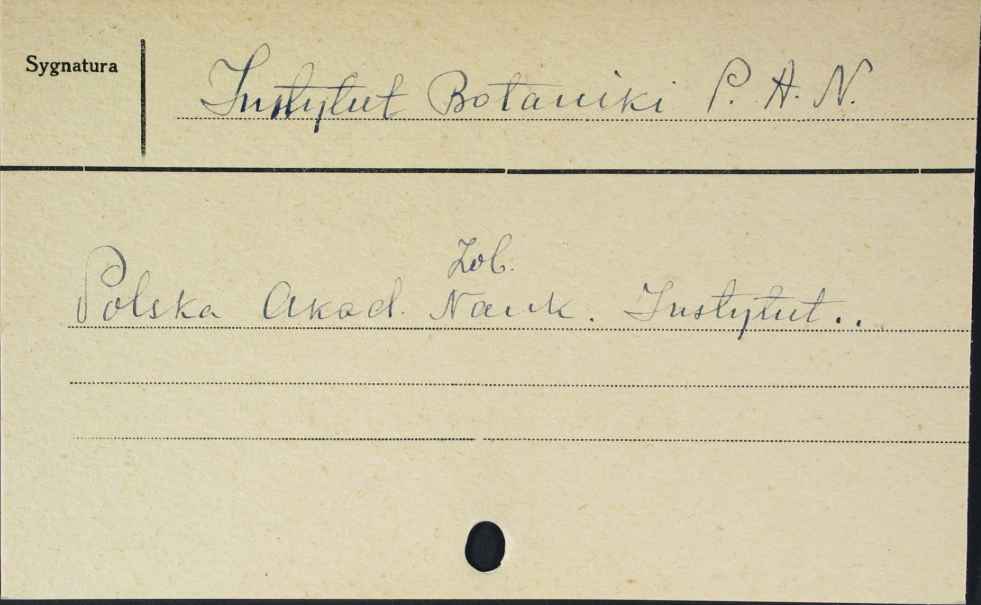 Sygnatura
Instytut Botaniki P. A. N.
Zob.
Polska Akad. Nauk. Instytut..